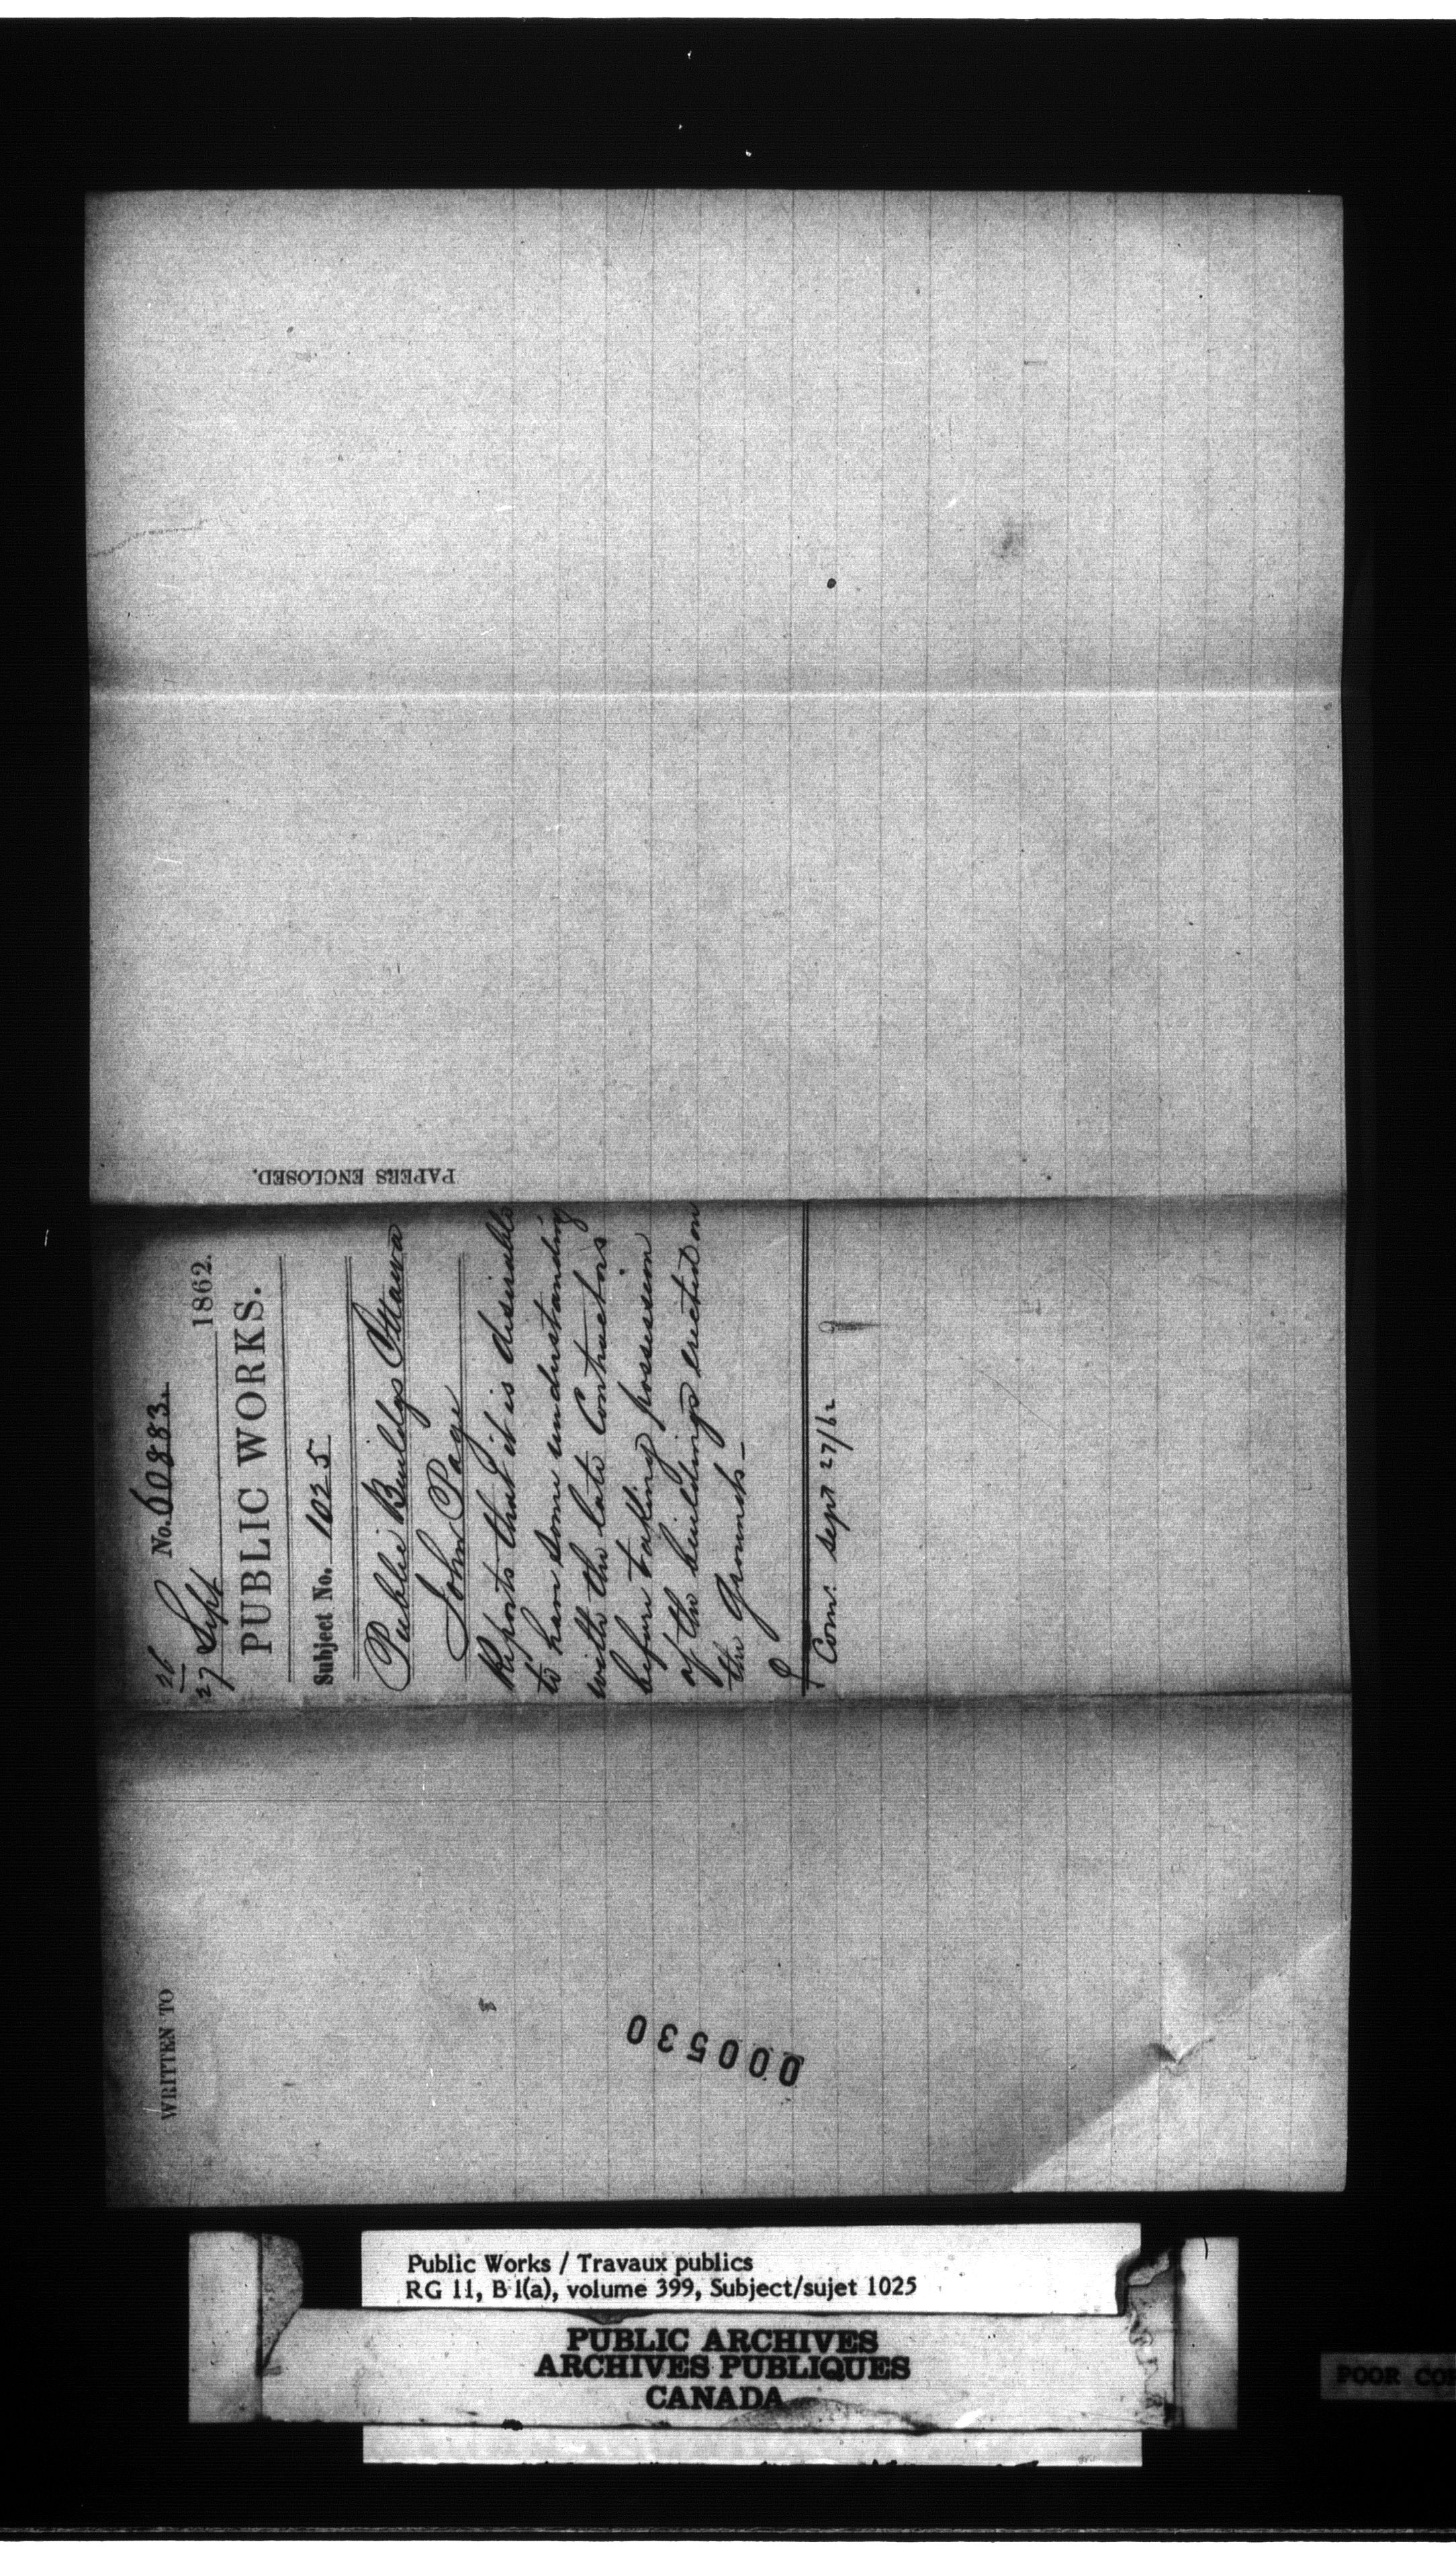 26
No. 60883.
27 Sept 1862.
PUBLIC WORKS.
Subject No. 1025
Public Buildgs Ottawa
John Page
Reports that it is desirable
to have some understanding
with the late Contractors
before taking possession
of the buildings erected on
the Grounds—
Com. Sept 27/62
PAPERS ENCLOSED.
WRITTEN TO
000530
Public Works / Travaux publics
RG 11, B 1(a), volume 399, Subject/sujet 1025
PUBLIC ARCHIVES
ARCHIVES PUBLIQUES
CANADA
POOR CO